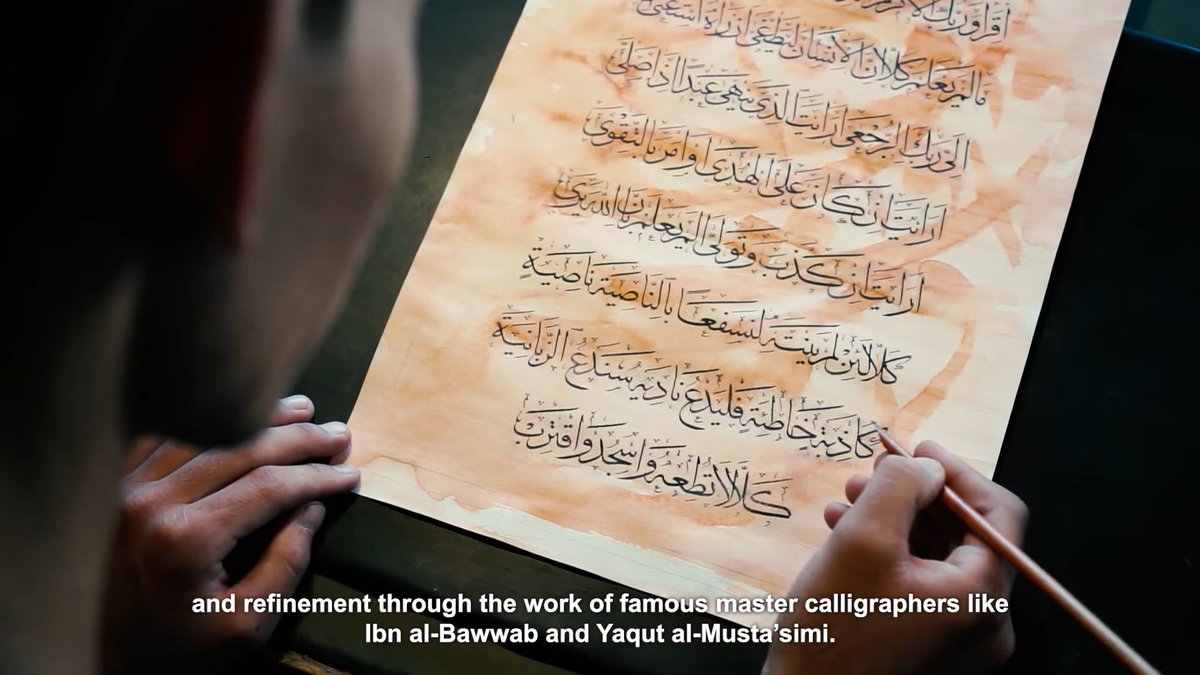 اقرا وربك الاكرم
مَالَمْ يَعْلَمْ كَلَّا اِنَّ الْاِنْسَانَ لَيَطْغٰى اَنْ رَاٰهُ اسْتَغْنٰى
اِلٰى رَبِّكَ الرُّجْعٰى اَرَاَيْتَ الَّذِى يَنْهٰى عَبْدًا اِذَا صَلّٰى
اَرَاَيْتَ اِنْ كَانَ عَلَى الْهُدٰى اَوْ اَمَرَ بِالتَّقْوٰى
اَرَاَيْتَ اِنْ كَذَّبَ وَتَوَلّٰى اَلَمْ يَعْلَمْ بِاَنَّ اللّٰهَ يَرٰى
كَلَّا لَئِنْ لَمْ يَنْتَهِ لَنَسْفَعًا بِالنَّاصِيَةِ نَاصِيَةٍ
كَاذِبَةٍ خَاطِئَةٍ فَلْيَدْعُ نَادِيَهُ سَنَدْعُ الزَّبَانِيَةَ
كَلَّا لَا تُطِعْهُ وَاسْجُدْ وَاقْتَرِبْ
and refinement through the work of famous master calligraphers like
Ibn al-Bawwab and Yaqut al-Musta’simi.